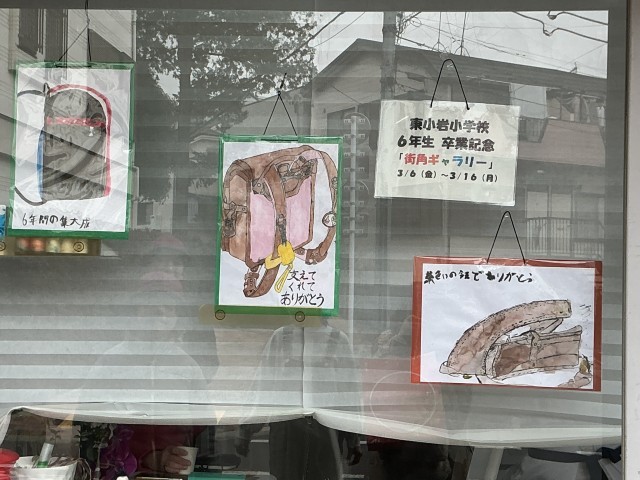 東小岩小学校
6年生 卒業記念
「街角ギャラリー」
3/6（金）～3/16（月）
6年間の集大成
支えて
くれて
ありがとう
ありがとう